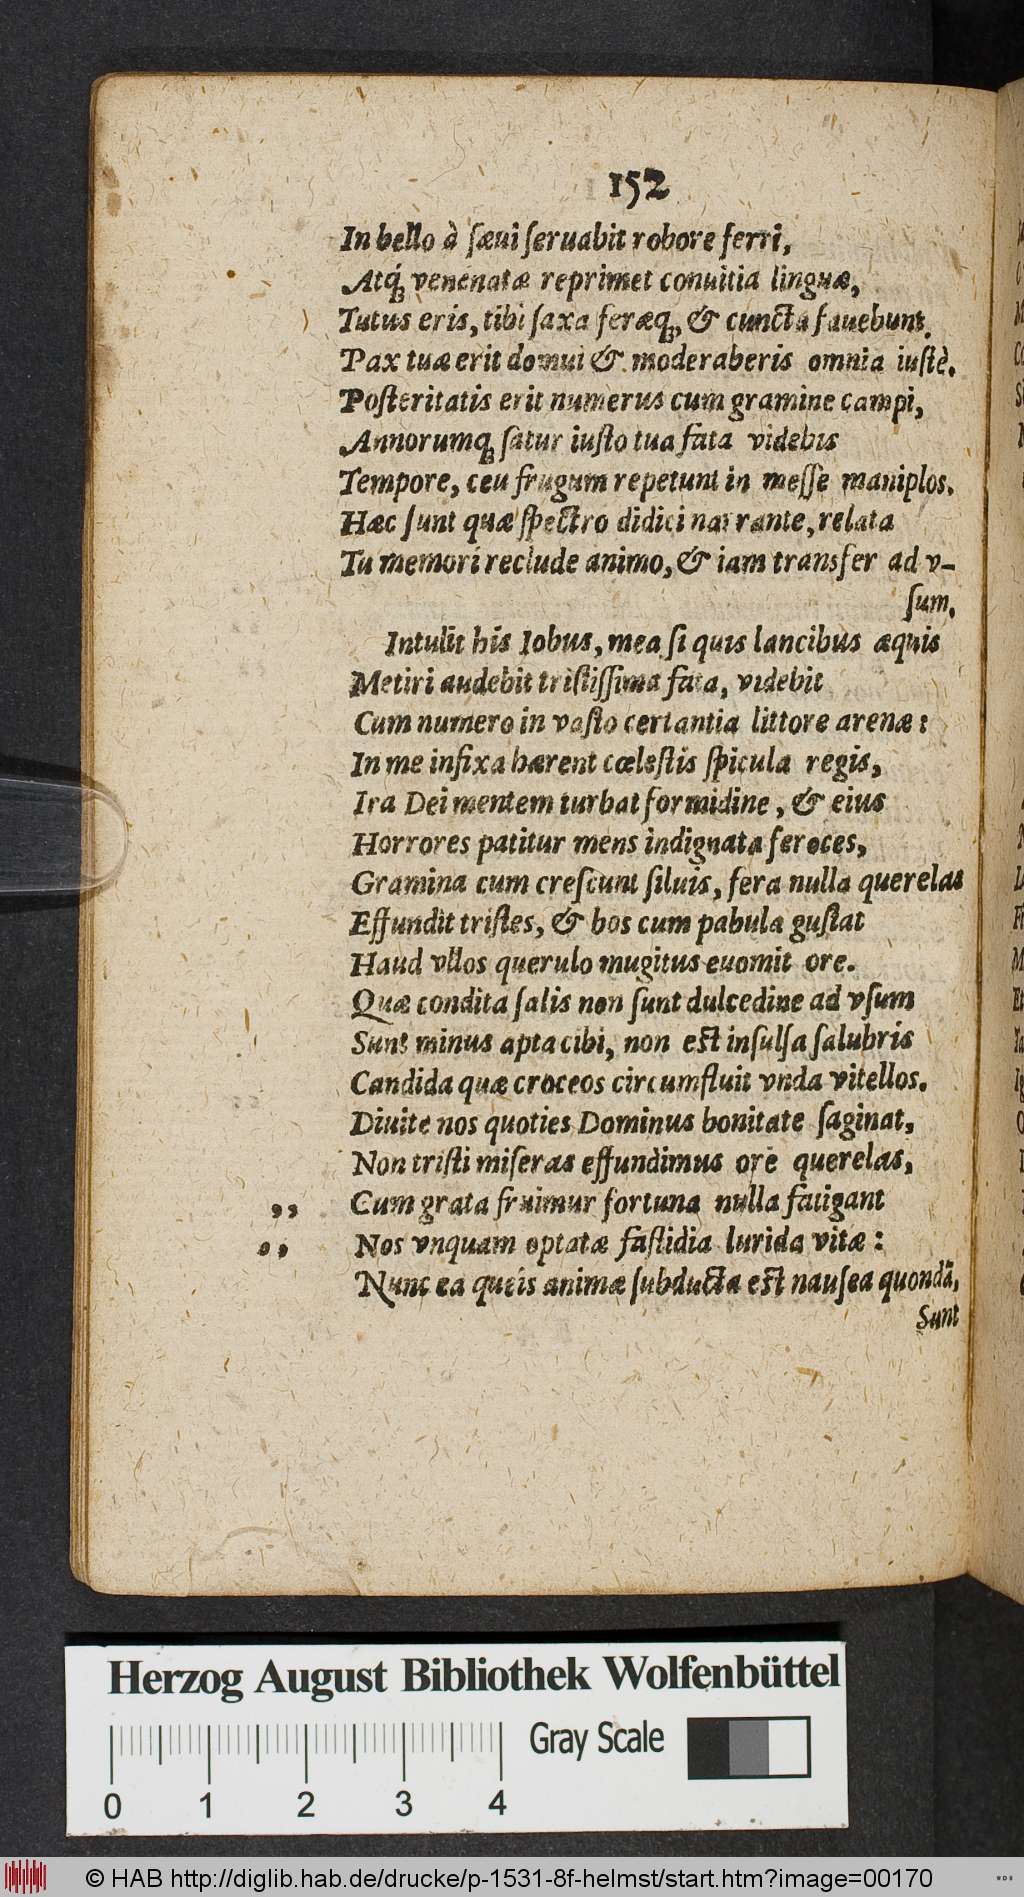 152
In bello à ſæui ſeruabit robore ferri,
Atq́; venenatæ reprimet conuitia linguæ,
Tutus eris, tibi ſaxa feræq;, & cuncta fauebunt.
Pax tuæ erit domui & moderaberis omnia iuſtè.
Poſteritatis erit numerus cum gramine campi,
Annorumq; ſatur iuſto tua fata videbis
Tempore, ceu frugum repetunt in meſſe maniplos.
Hæc ſunt quæ ſpectro didici narrante, relata
Tu memori reclude animo, & iam transfer ad v-
ſum.
Intulit his Iobus, mea ſi quis lancibus æquis
Metiri audebit triſtiſſima fata, videbit
Cum numero in vaſto certantia littore arenæ:
In me infixa hærent cœleſtis ſpicula regis,
Ira Dei mentem turbat formidine, & eius
Horrores patitur mens indignata feroces,
Gramina cum creſcunt ſiluis, fera nulla querelas
Effundit triſtes, & bos cum pabula guſtat
Haud vllos querulo mugitus euomit ore.
Quæ condita ſalis non ſunt dulcedine ad vſum
Sunt minus apta cibi, non eſt inſulſa ſalubris
Candida quæ croceos circumfluit vnda vitellos.
Diuite nos quoties Dominus bonitate ſaginat,
Non triſti miſeras effundimus ore querelas,
,, Cum grata fruimur fortuna nulla fatigant
,, Nos vnquam optatæ faſtidia lurida vitæ:
Nunc ea queis animæ ſubducta eſt nauſea quondã,
Sunt
Herzog August Bibliothek Wolfenbüttel
Gray Scale
0 1 2 3 4
© HAB http://diglib.hab.de/drucke/p-1531-8f-helmst/start.htm?image=00170